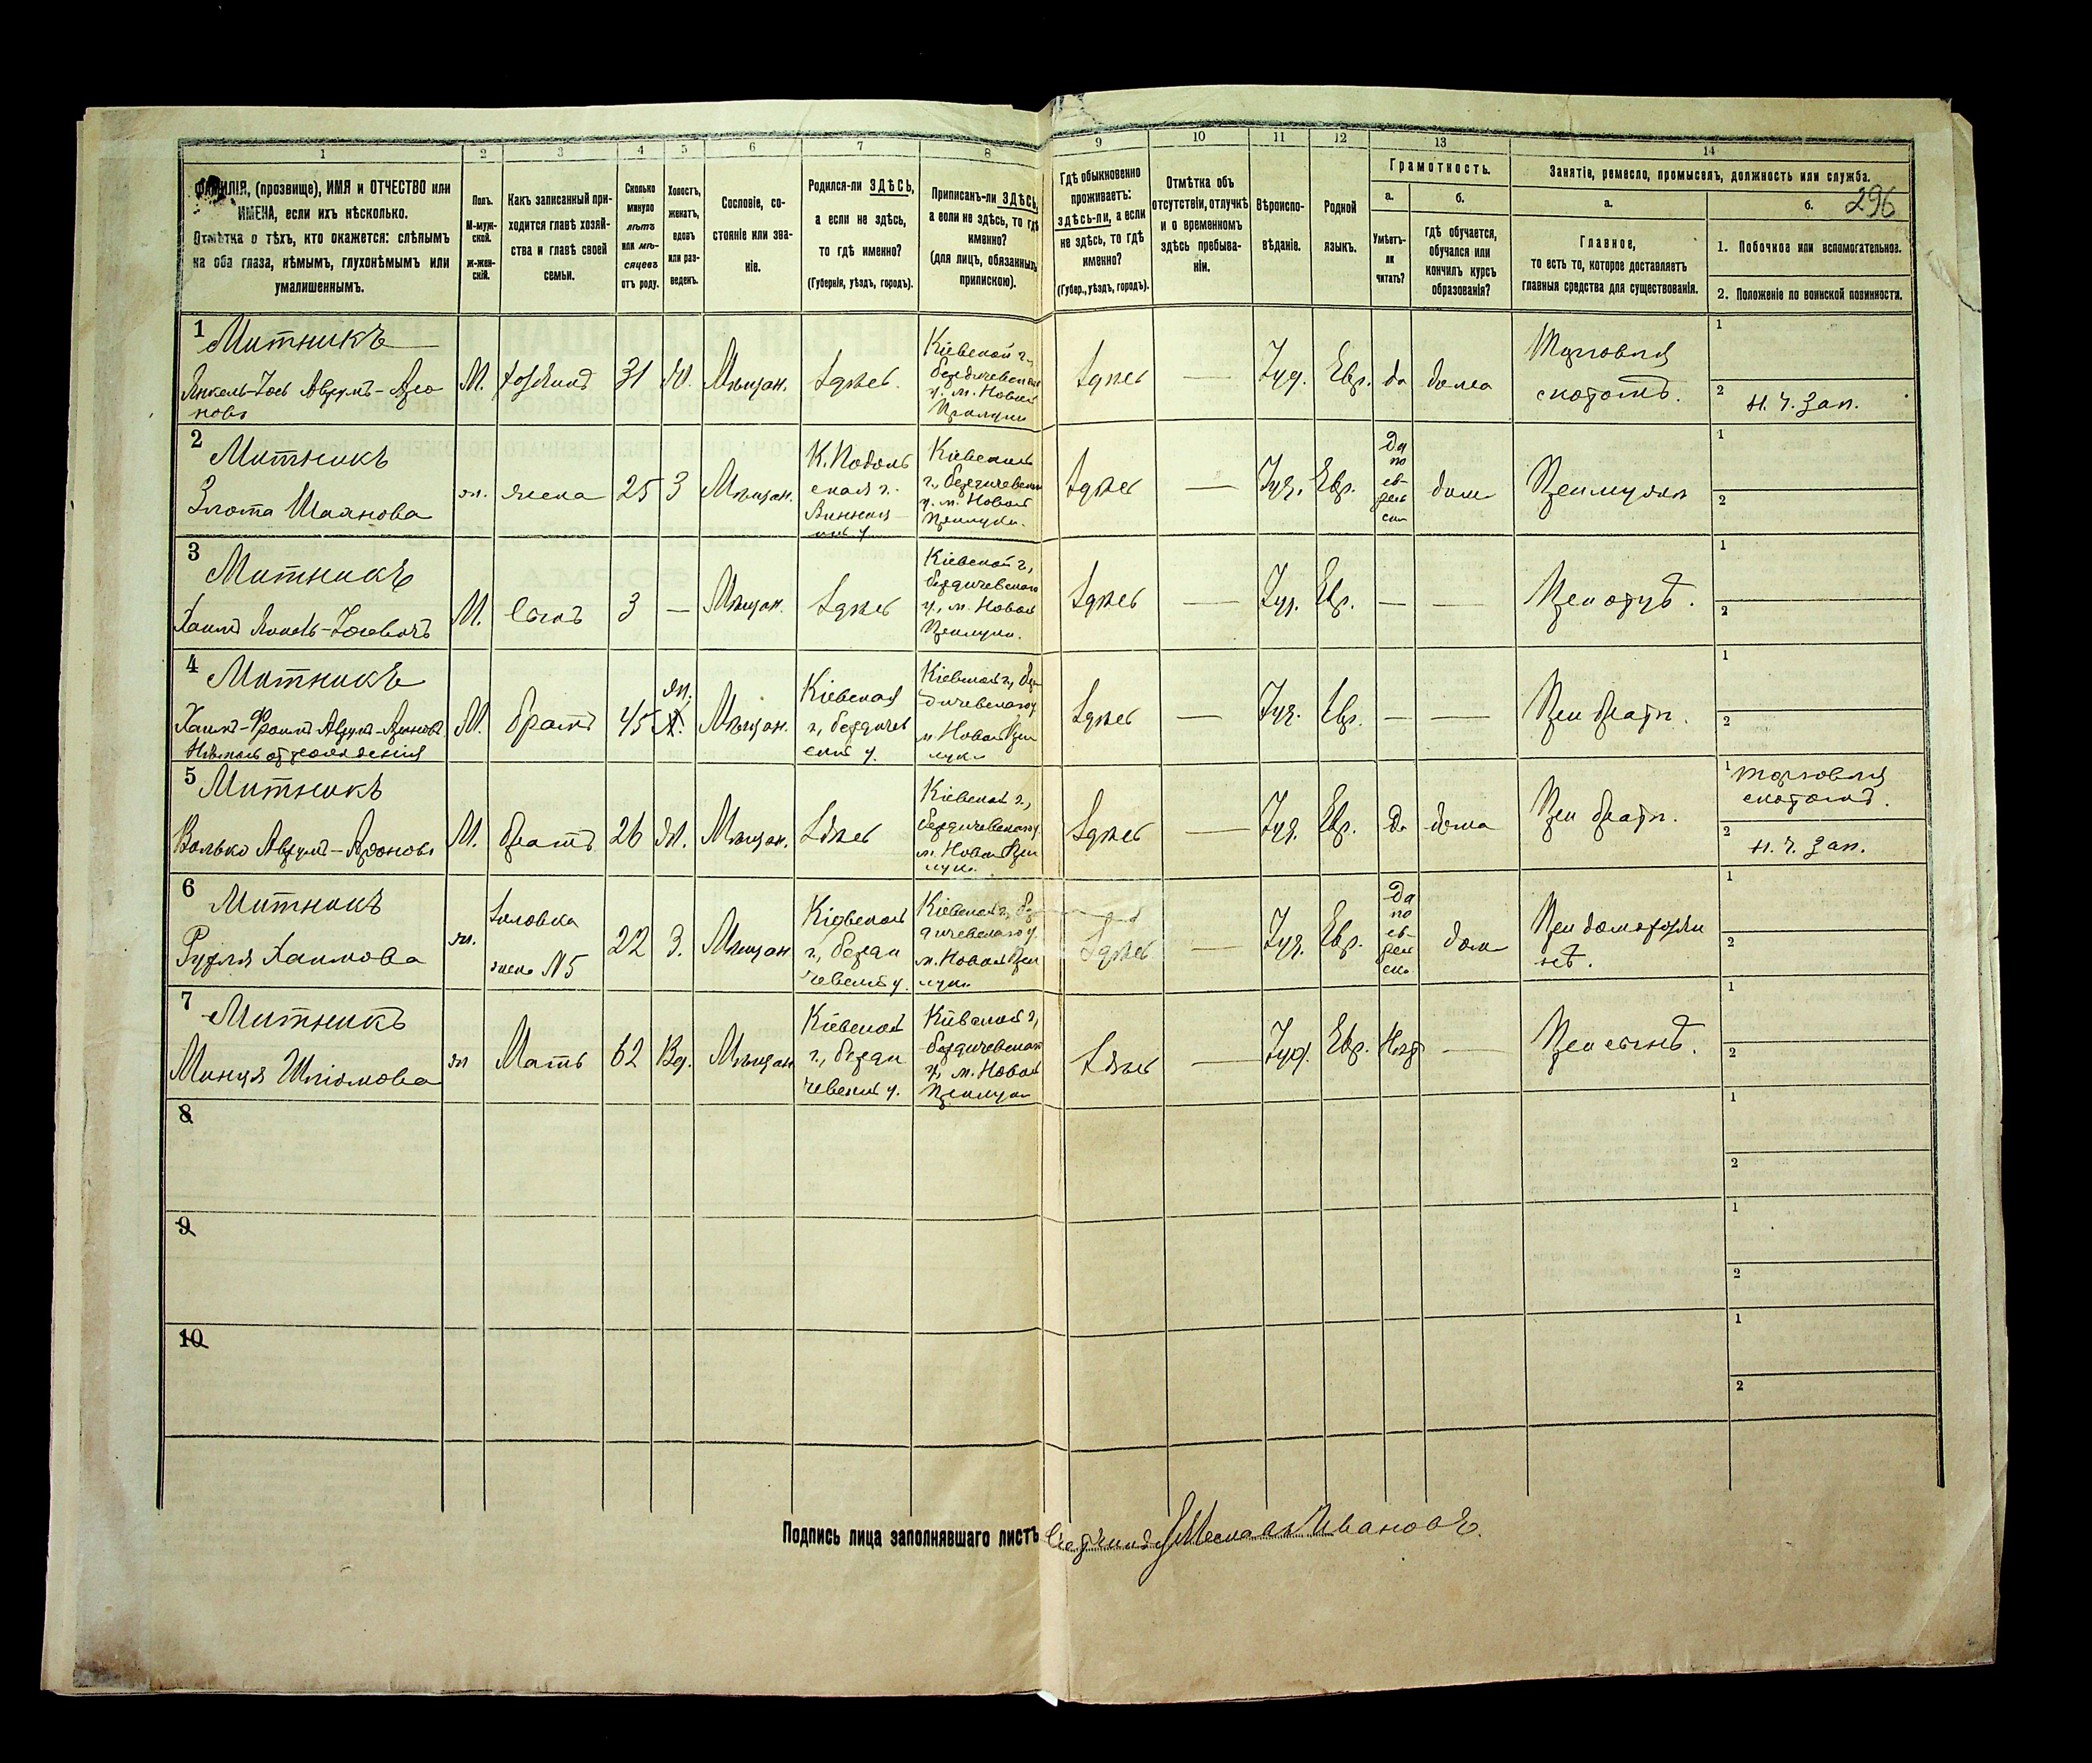 1 2 3 4 5 6 7 8 9 10 11 12 13 14
ФАМИЛІЯ, (прозвище), ИМЯ и ОТЧЕСТВО или
ИМЕНА, если ихъ нѣсколько.
Отмѣтка о тѣхъ, кто окажется: слѣпымъ
на оба глаза, нѣмымъ, глухонѣмымъ или
умалишеннымъ.
Полъ.
М-муж-
ской.
Ж-жен-
скій.
Какъ записанный при-
ходится главѣ хозяй-
ства и главѣ своей
семьи.
Сколько
минуло
лѣтъ
или мѣ-
сяцевъ
отъ роду.
Холостъ,
женатъ,
вдовъ
или раз-
веденъ.
Сословіе, со-
стояніе или зва-
ніе.
Родился-ли ЗДѢСЬ,
а если не здѣсь,
то гдѣ именно?
(Губернія, уѣздъ, городъ).
Приписанъ-ли ЗДѢСЬ,
а если не здѣсь, то гдѣ
именно?
(для лицъ, обязанныхъ
припискою).
Гдѣ обыкновенно
проживаетъ:
ЗДѢСЬ-ли, а если
не здѣсь, то гдѣ
именно?
(Губер., уѣздъ, городъ).
Отмѣтка объ
отсутствіи, отлучкѣ
и о временномъ
здѣсь пребыва-
ніи.
Вѣроиспо-
вѣданіе.
Родной
языкъ.
Грамотность.
а.
Умѣетъ-
ли
читать?
б.
гдѣ обучается,
обучался или
кончилъ курсъ
образованія?
Занятіе, ремесло, промыселъ, должность или служба.
а.
Главное,
то есть то, которое доставляетъ
главныя средства для существованія.
б. 296
1. Побочное или вспомогательное.
2. Положеніе по воинской повинности.
1 Митникъ
Янкель-Іось Аврумъ-Аро
новъ
М.
31
Мѣщан.
Здѣсь.
Кіевской г.,
бердичевскаго
у. м. Новой
Прилуки
Здѣсь
—
Іуд.
Евр.
да
дома
Торговля
скотомъ.
1
2 н. ч. зап.
2 Митникъ
Злота Шаянова
ж.
жена
25
З
Мѣщан.
К. Подоль
ская г.
Винниц
кій у.
Кіевской
г., бердичевскаго
у. м. Новой
Прилуки.
Здѣсь
—
Іуд.
Евр.
Да
по
ев-
рей
ски
дома
При мужѣ
1
2
3 Митникъ
Хаимъ Янкель-Іосевичъ
М.
Сынъ
3
—
Мѣщан.
Здѣсь
Кіевской г.,
бердичевскаго
у., м. Новой
Прилуки.
Здѣсь
—
Іуд.
Евр.
—
—
При отцѣ.
1
2
4 Митникъ
Нѣмой отъ рожденія
М.
братъ
45
Мѣщан.
Кіевская
г., бердичев
скій у.
Кіевской г., бер
дичевскаго у.
м. Новой При
луки
Здѣсь
—
Іуд.
Евр.
—
—
При братѣ.
1
2
5 Митникъ
Волько Аврумъ-Ароновъ
М.
братъ
26
Мѣщан.
Здѣсь
Кіевской г.,
бердичевскаго у.
м. Новой При
луки.
Здѣсь
—
Іуд.
Евр.
да
дома
При братѣ.
1 Торговля
скотомъ.
2 н. ч. зап.
6 Митникъ
Рухля Хаимова
ж.
Золовка
жена №5
22
З.
Мѣщан.
Кіевской
г., берди
чевскій у.
Кіевской г., бер
дичевскаго у.
м. Новой При
луки
Здѣсь
—
Іуд.
Евр.
Да
по
ев-
рей
ски
дома
При домохозяи
нѣ.
1
2
7 Митникъ
Минця Шліомова
ж
Мать
62
Вд.
Мѣщан.
Кіевской
г., берди
чевскій у.
Кіевской г.,
бердичевскаго
у., м. Новой
Прилуки
Здѣсь
—
Іуд.
Евр.
Нѣтъ
—
При сынѣ.
1
2
8
1
2
9
1
2
10
1
2
Подпись лица заполнявшаго листъ